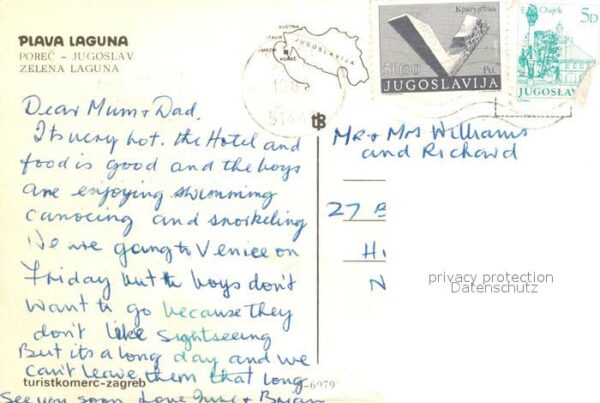 PLAVA LAGUNA
POREČ – JUGOSLAV
ZELENA LAGUNA
AUSTRIA
ITALIA
JUGOSLAVIJA
POREČ
Крагујевац
5000
JUGOSLAVIJA
Osijek
5D
JUGOSLA
Dear Mum + Dad,
Its very hot. the Hotel and
food is good and the boys
are enjoying swimming
canoeing and snorkeling
We are going to Venice on
Friday but the boys don't
want to go because they
don't like sightseeing
But its a long day and we
can't leave them that long
See you soon Love June + Brian
turistkomerc-zagreb
-6979
Mr + Mrs Williams
and Richard
27 B
H
N
privacy protection
Datenschutz